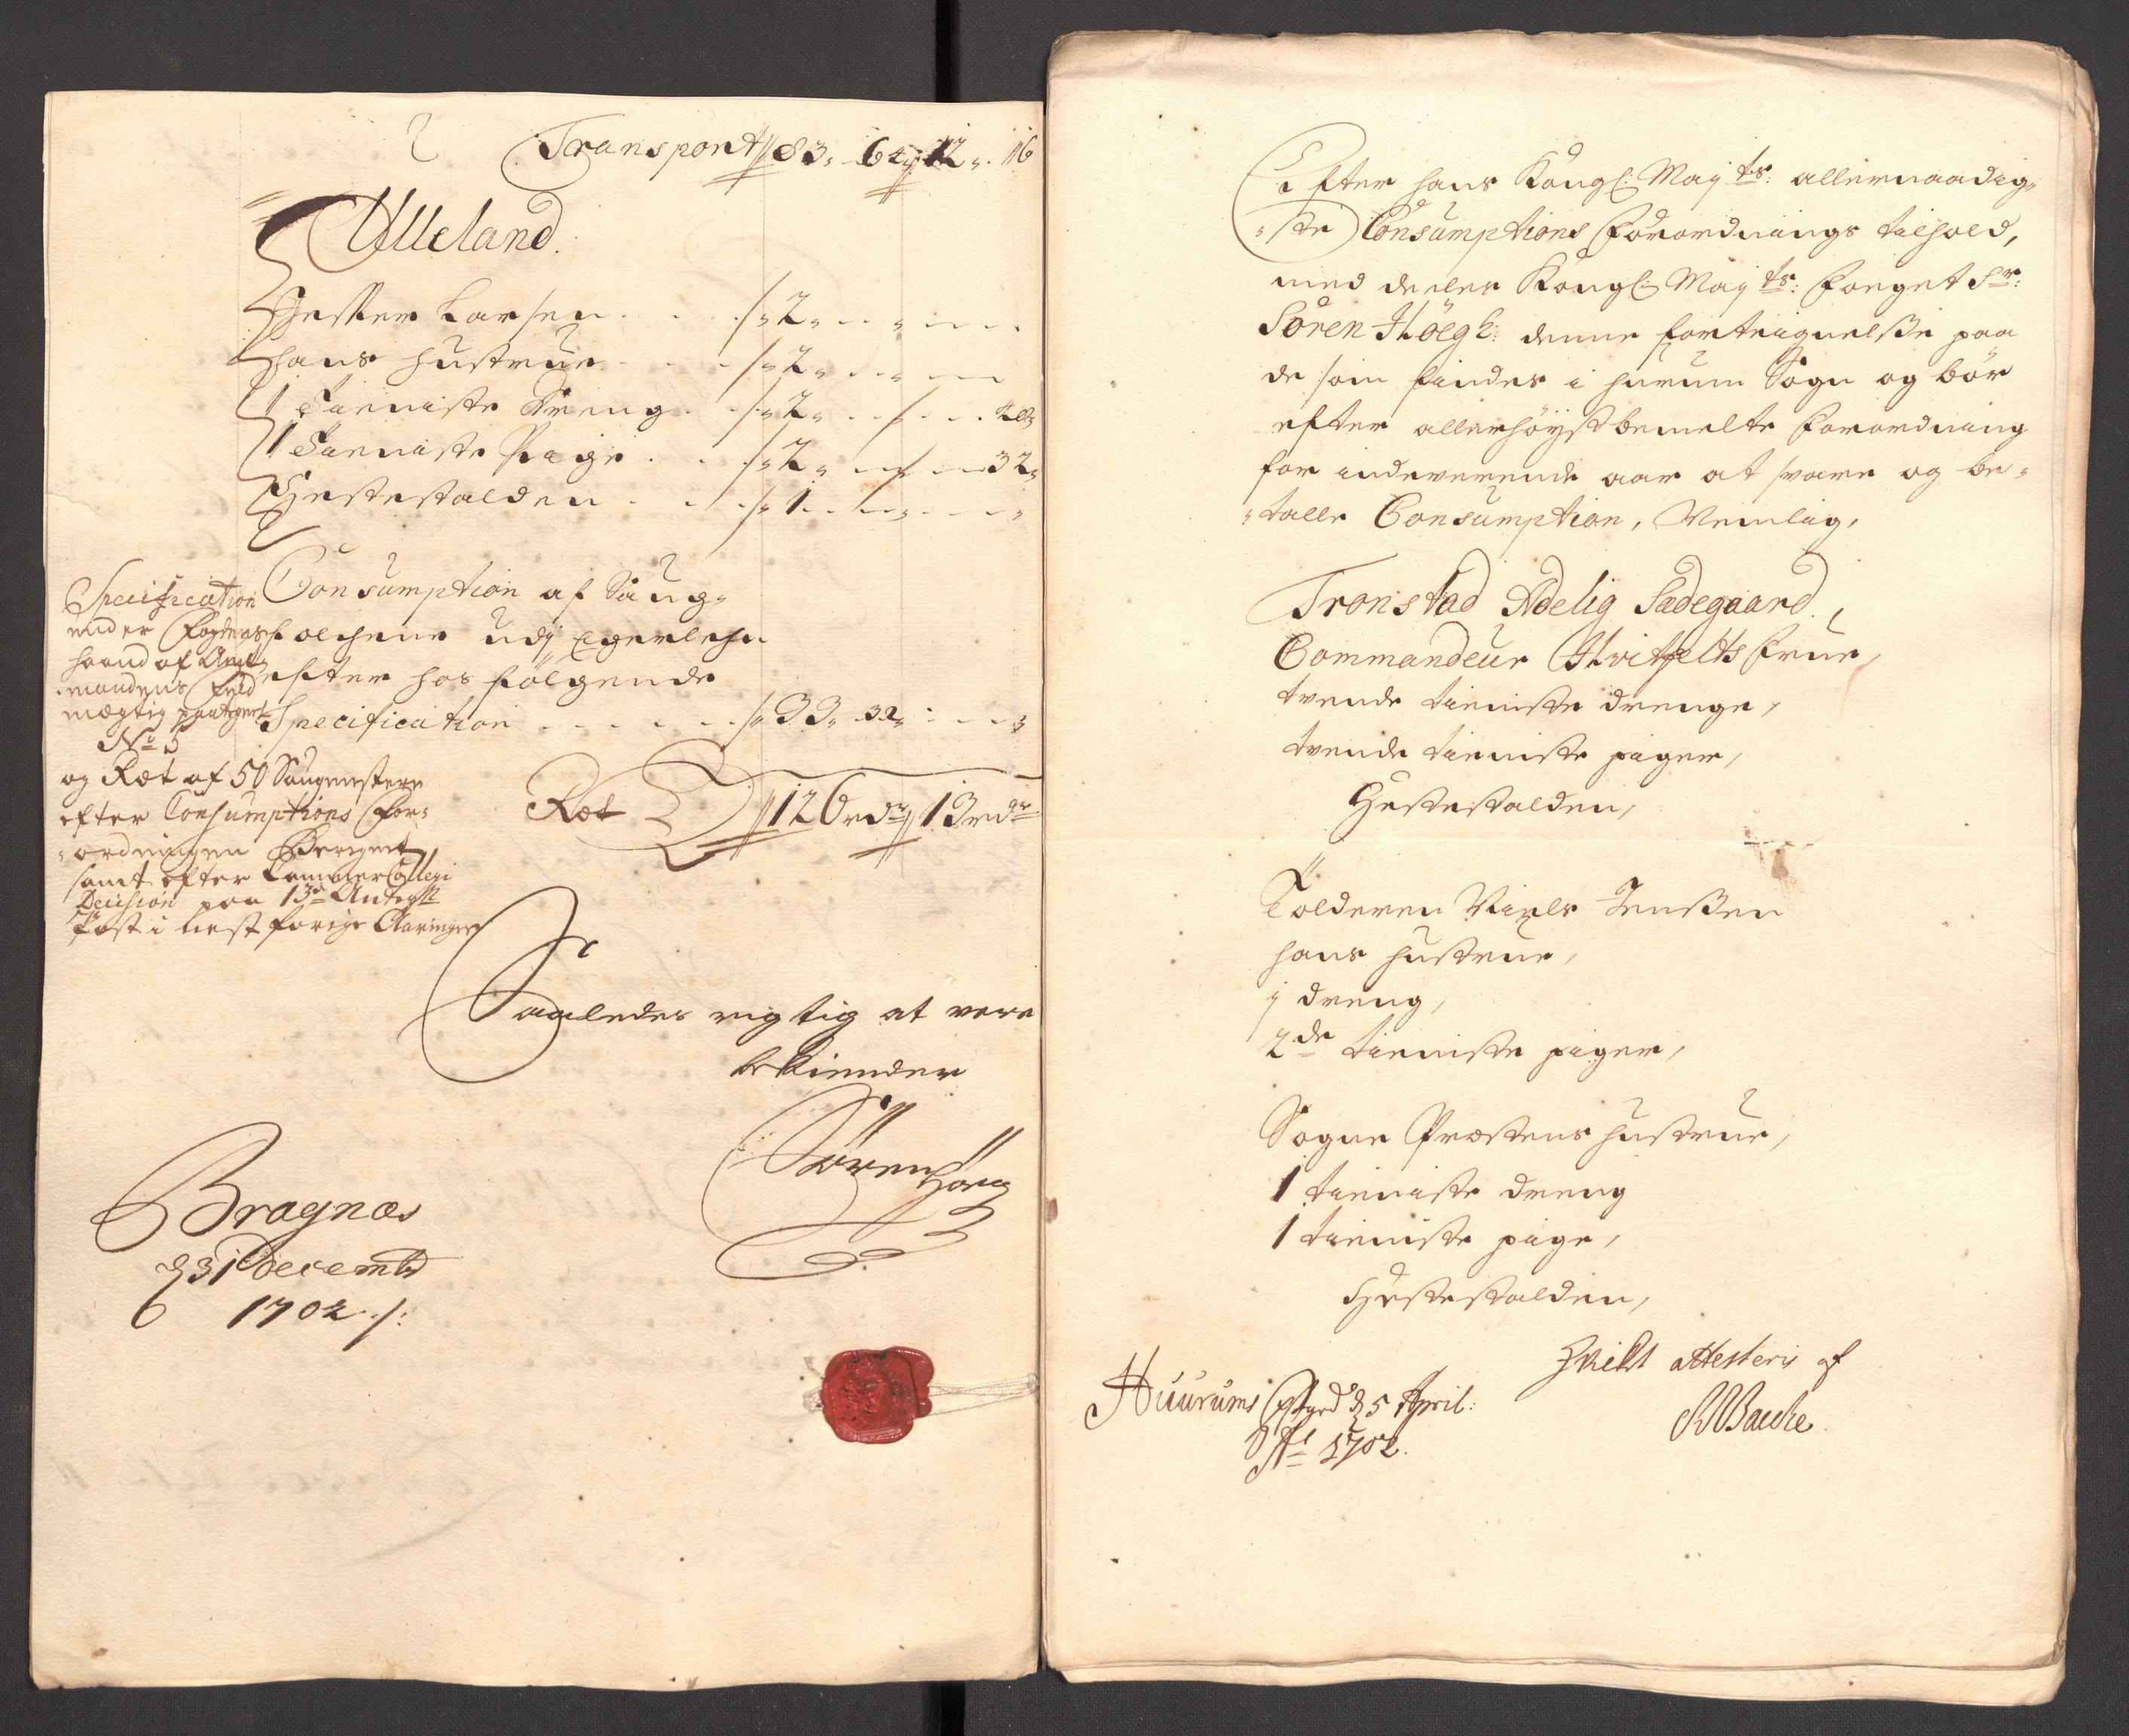 Transport // 83, 64 // 12 ,, 16
Ulleland
Jesper Larsen . . . /: 2 ,, . . ,, . . .
Hans Hustrue . . . /: 2 ,, . . ,, . .
1 Tieniste Dreng . . /: 2 ,, . . /: . . .
1 Tieniste Pige . . /: 2 ,, . . /: . . 32 ,,
Hestestalden . . . /: 1 . . . ,, . . .
Consumption af Saug-
folchene udj Egerlehn
efter hos følgende
Specification . . . . . . /: 33 ,, 32 ,, . . .
Specification
under Fogdens
haand af Amt-
mandens Fuld
mægtig paategnet
No 5
og Ræt af 50 Saugmestere
efter Consumptions For-
-ordningen Beregnet
samt efter Cammer Collegi
Decision paa 13de Antegn
Post i nest forige Aaringer
Ræt // 126 rdr // 13 rdr
Saaledes rigtig at vere
bekiender
Søren Høeg
Bragnæs
d 31 Decembr
1702 ./:
Efter hans Kongl: Mayts: allernaadig-
-ste Consumptions Forordnings tilhold,
med deeler Kongl: Mayts: Foeget Sr:
Søren Høegh: denne forteignelsse paa
de som findes i Hurum Sogn og bør
efter allerhøystbemelte Forordning
for indeverende aar at svare og be-
-talle Consumption, Nemlig,
Tronstad Adelig Sædegaard,
Commandeur Hvitfelts Frue,
tvende tieniste drenge,
tvende tieniste piger,
Hestestalden,
Tolderen Niels Jenssen
hans hustrue,
j dreng,
2de tieniste piger,
Sogne Præstens hustrue,
1 tieniste dreng
1 tieniste pige,
Hestestalden,
Hvilket attesteris af
Huurums Pstgrd d 5 April:
Ao 1702.